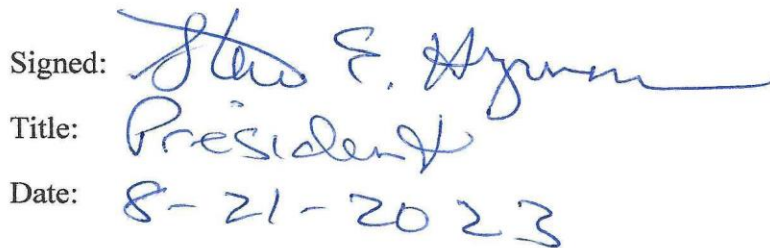 Signed: E. Hyman
Title: President
Date: 8-21-2023